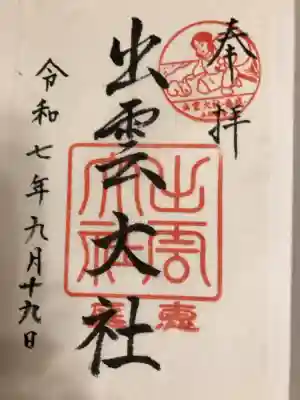 奉拝
出雲大社
出雲大社
令和七年九月十九日